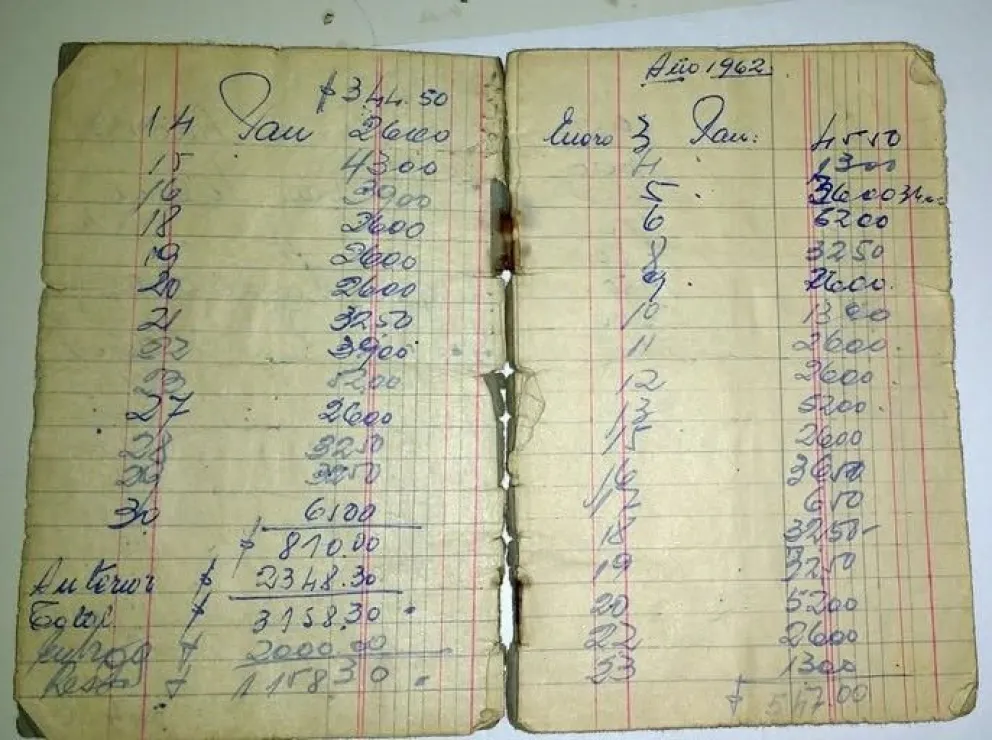 $ 344.50
14 Pan 2600
15 4300
16 3900
18 2600
19 2600
20 2600
21 3250
22 3900
23 5200
27 2600
28 3250
29 3250
30 6500
$ 810.00
Anterior $ 2348.30
Total $ 3158.30
Entrego $ 2000.00
Resta $ 1158.30
Año 1962
Enero 3 Pan: 4550
4 1300
5 3600
6 5200
8 3250
9 2600
10 1300
11 2600
12 2600
13 5200
15 2600
16 3650
17 650
18 3250
19 3250
20 5200
22 2600
23 1300
$ 547.00